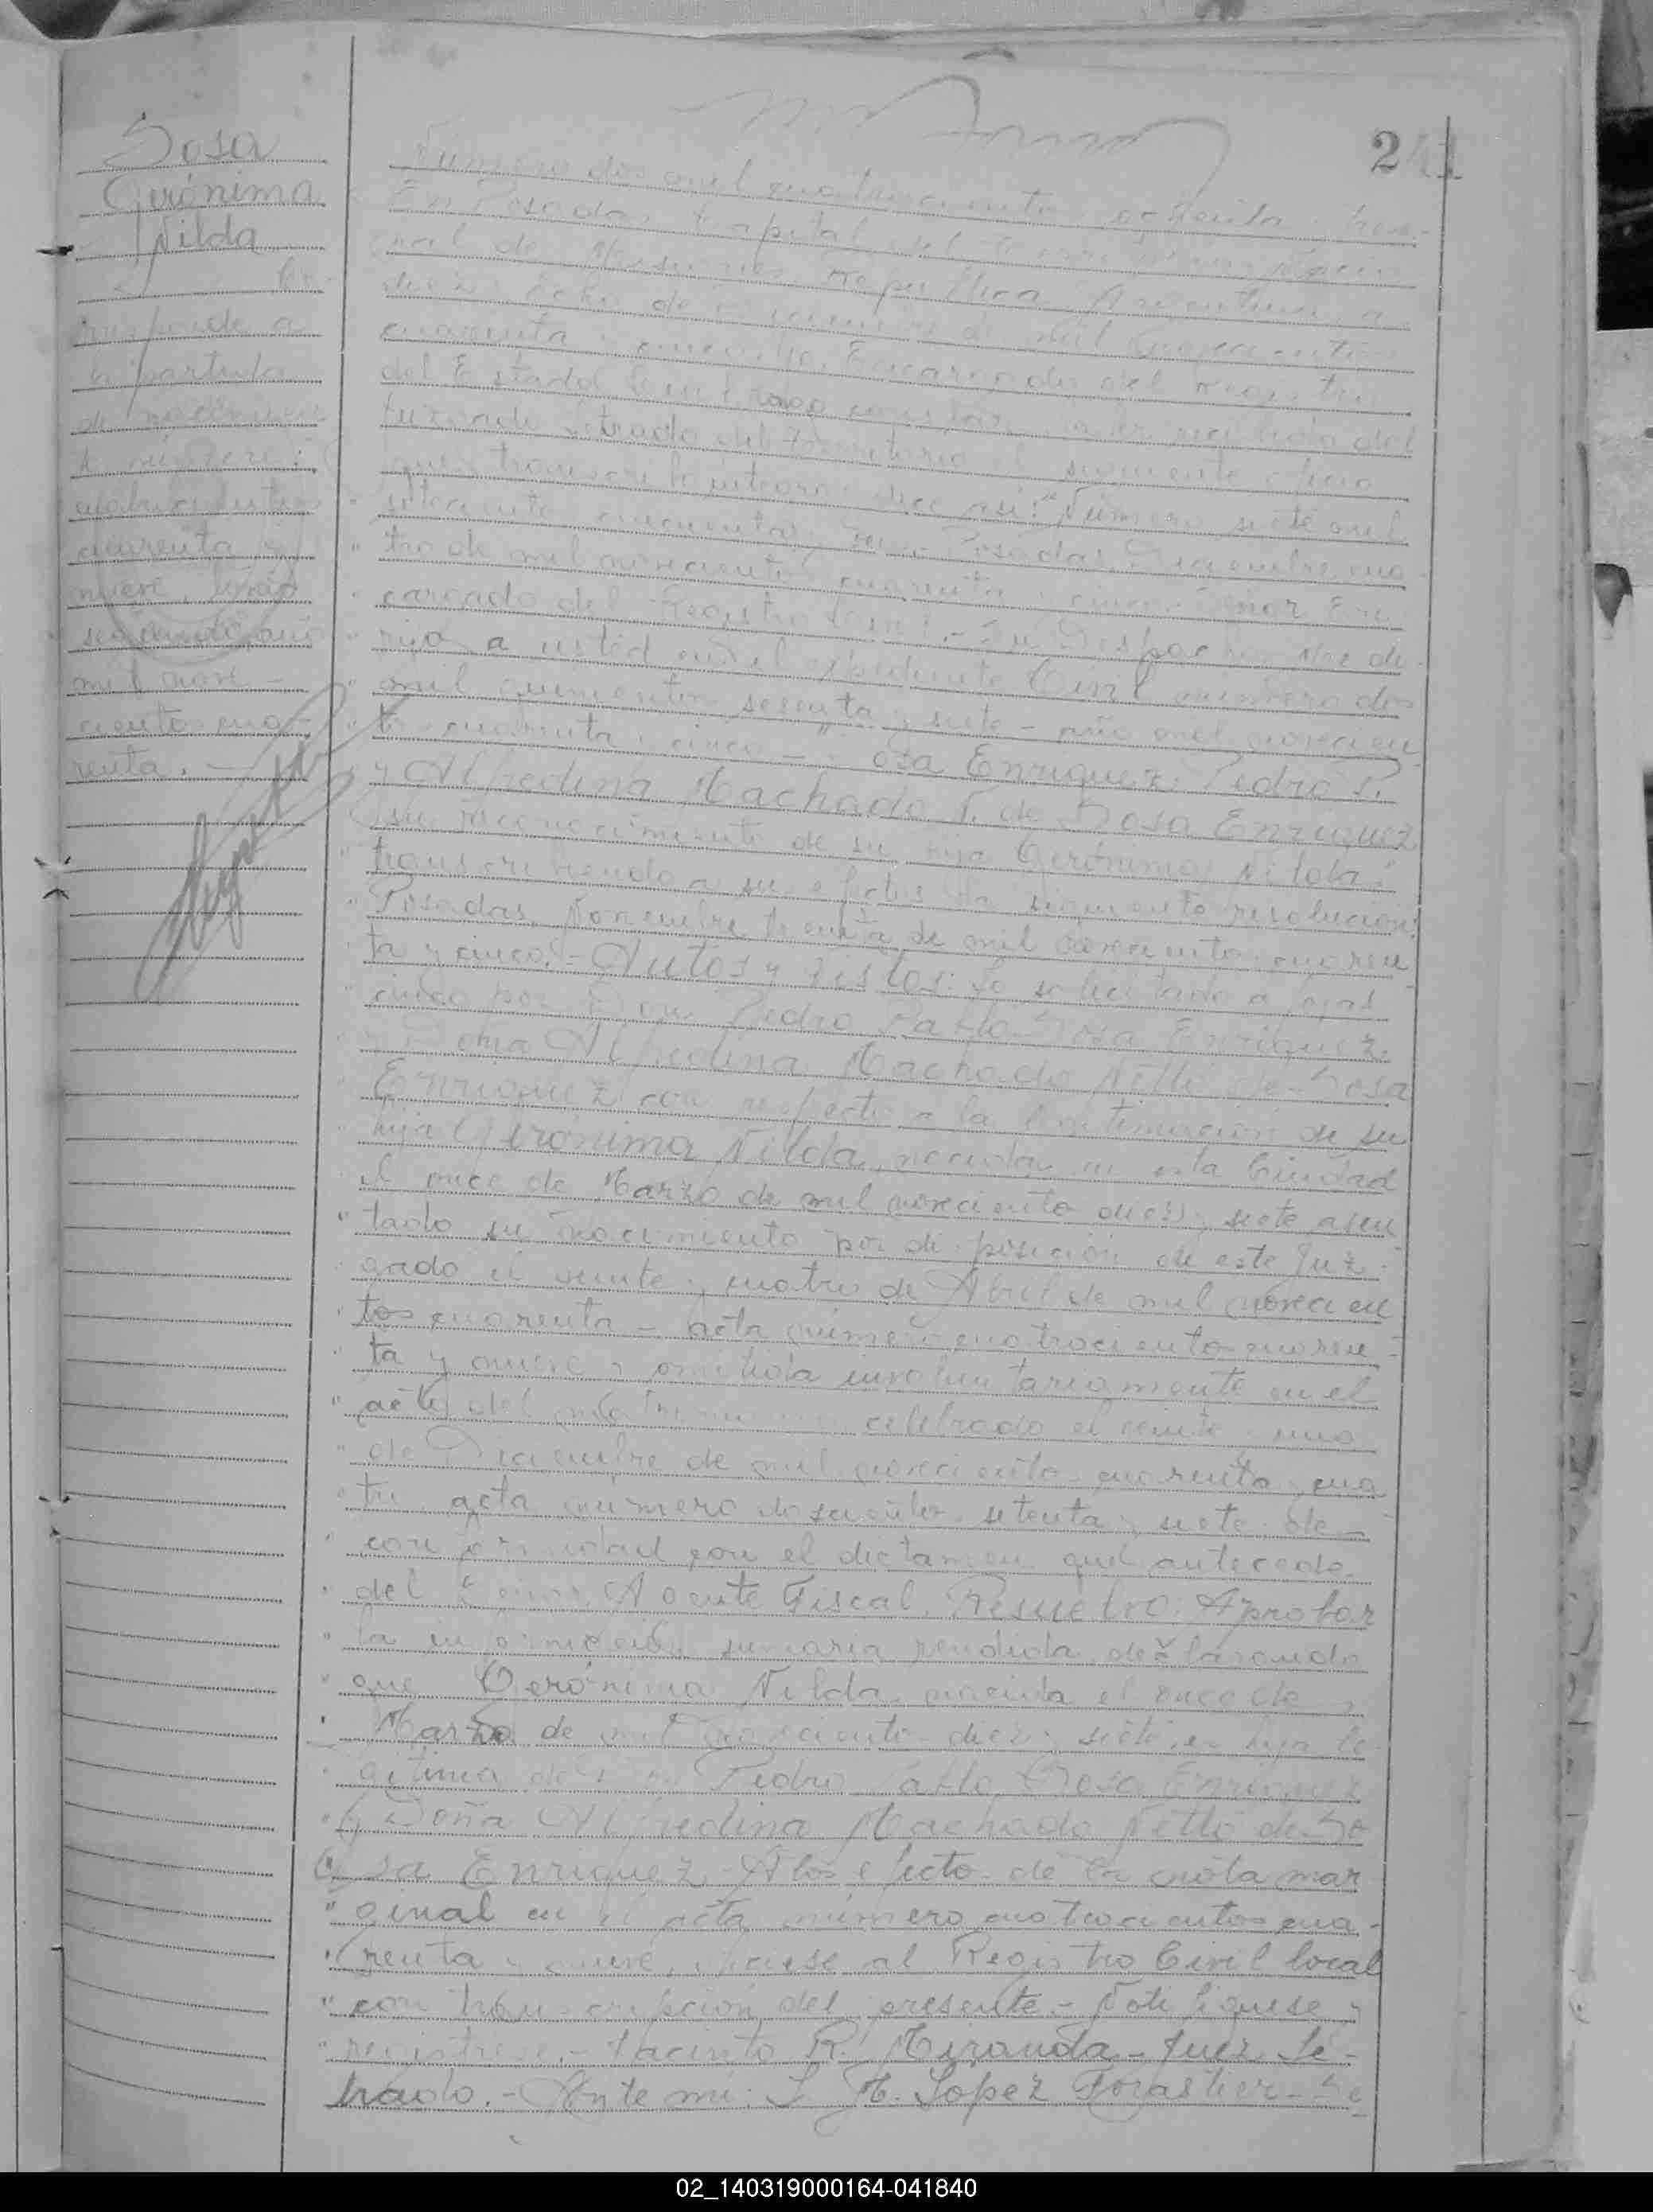 241
Sosa
Gerónima
Nilda
Co-
rresponde a
la partida
de nacimien
to número:
cuatrocientos
cuarenta y
nueve, tomo
segundo, año
mil nove-
cientos cua-
renta.-
Número dos mil cuatrocientos ochenta y tres:-
En Posadas, Capital del Territorio Nacio
nal de Misiones República Argentina, a
diez y ocho de de mil novecientos
cuarenta y cinco, Yo, Encargado del Registro
del Estado Civil hago constar haber recibido del
Juzgado Letrado del Territorio el siguiente oficio
que transcribo íntegro y dice así: "Número siete mil
" setecientos cincuenta y seis.- Posadas, Diciembre cua
" tro de mil novecientos cuarenta y cinco.- Señor En
" cargado del Registro Civil.- Su Despacho.- Me di-
" rijo a usted en el expediente Civil número dos
" mil quinientos sesenta y siete - año mil novecien
" tos cuarenta y cinco - "Sosa Enriquez Pedro P.
" y Alfredina Machado N. de Sosa Enriquez
" su reconocimiento de su hija Gerónima Nilda",
" transcribiendo a sus efectos la siguiente resolución:
" Posadas, Noviembre treinta de mil novecientos cuaren
" ta y cinco.- Autos y Vistos: Lo solicitado a fojas
" cinco por Don Pedro Pablo Sosa Enriquez
" y Doña Alfredina Machado Netto de Sosa
" Enriquez con respecto a la legitimación de su
" hija Gerónima Nilda, nacida en esta Ciudad
" el once de Marzo de mil novecientos diez y siete, asen
" tado su nacimiento por disposición de este Juz-
" gado el veinte y cuatro de Abril de mil novecien
" tos cuarenta - acta número cuatrocientos cuaren-
" ta y nueve y omitida involuntariamente en el
" acta del matrimonio celebrado el veinte y uno
" de Diciembre de mil novecientos cuarenta y cua
" tro, acta número doscientos setenta y siete de
" conformidad con el dictamen que antecede
" del Señor Agente Fiscal, Resuelvo: Aprobar
" la información sumaria rendida, declarando
" que Gerónima Nilda, nacida el once de
" Marzo de mil novecientos diez y siete, es hija le-
" gítima de Don Pedro Pablo Sosa Enriquez
" y Doña Alfredina Machado Netto de So
" sa Enriquez.- A los efectos de la nota mar
" ginal en el acta número cuatrocientos cua-
" renta y nueve, ofíciese al Registro Civil local
" con transcripción del presente.- Notifíquese y
" regístrese.- Jacinto R. Miranda - Juez Le-
trado.- Ante mi: L. M. Lopez Forastier - Se
02_140319000164-041840